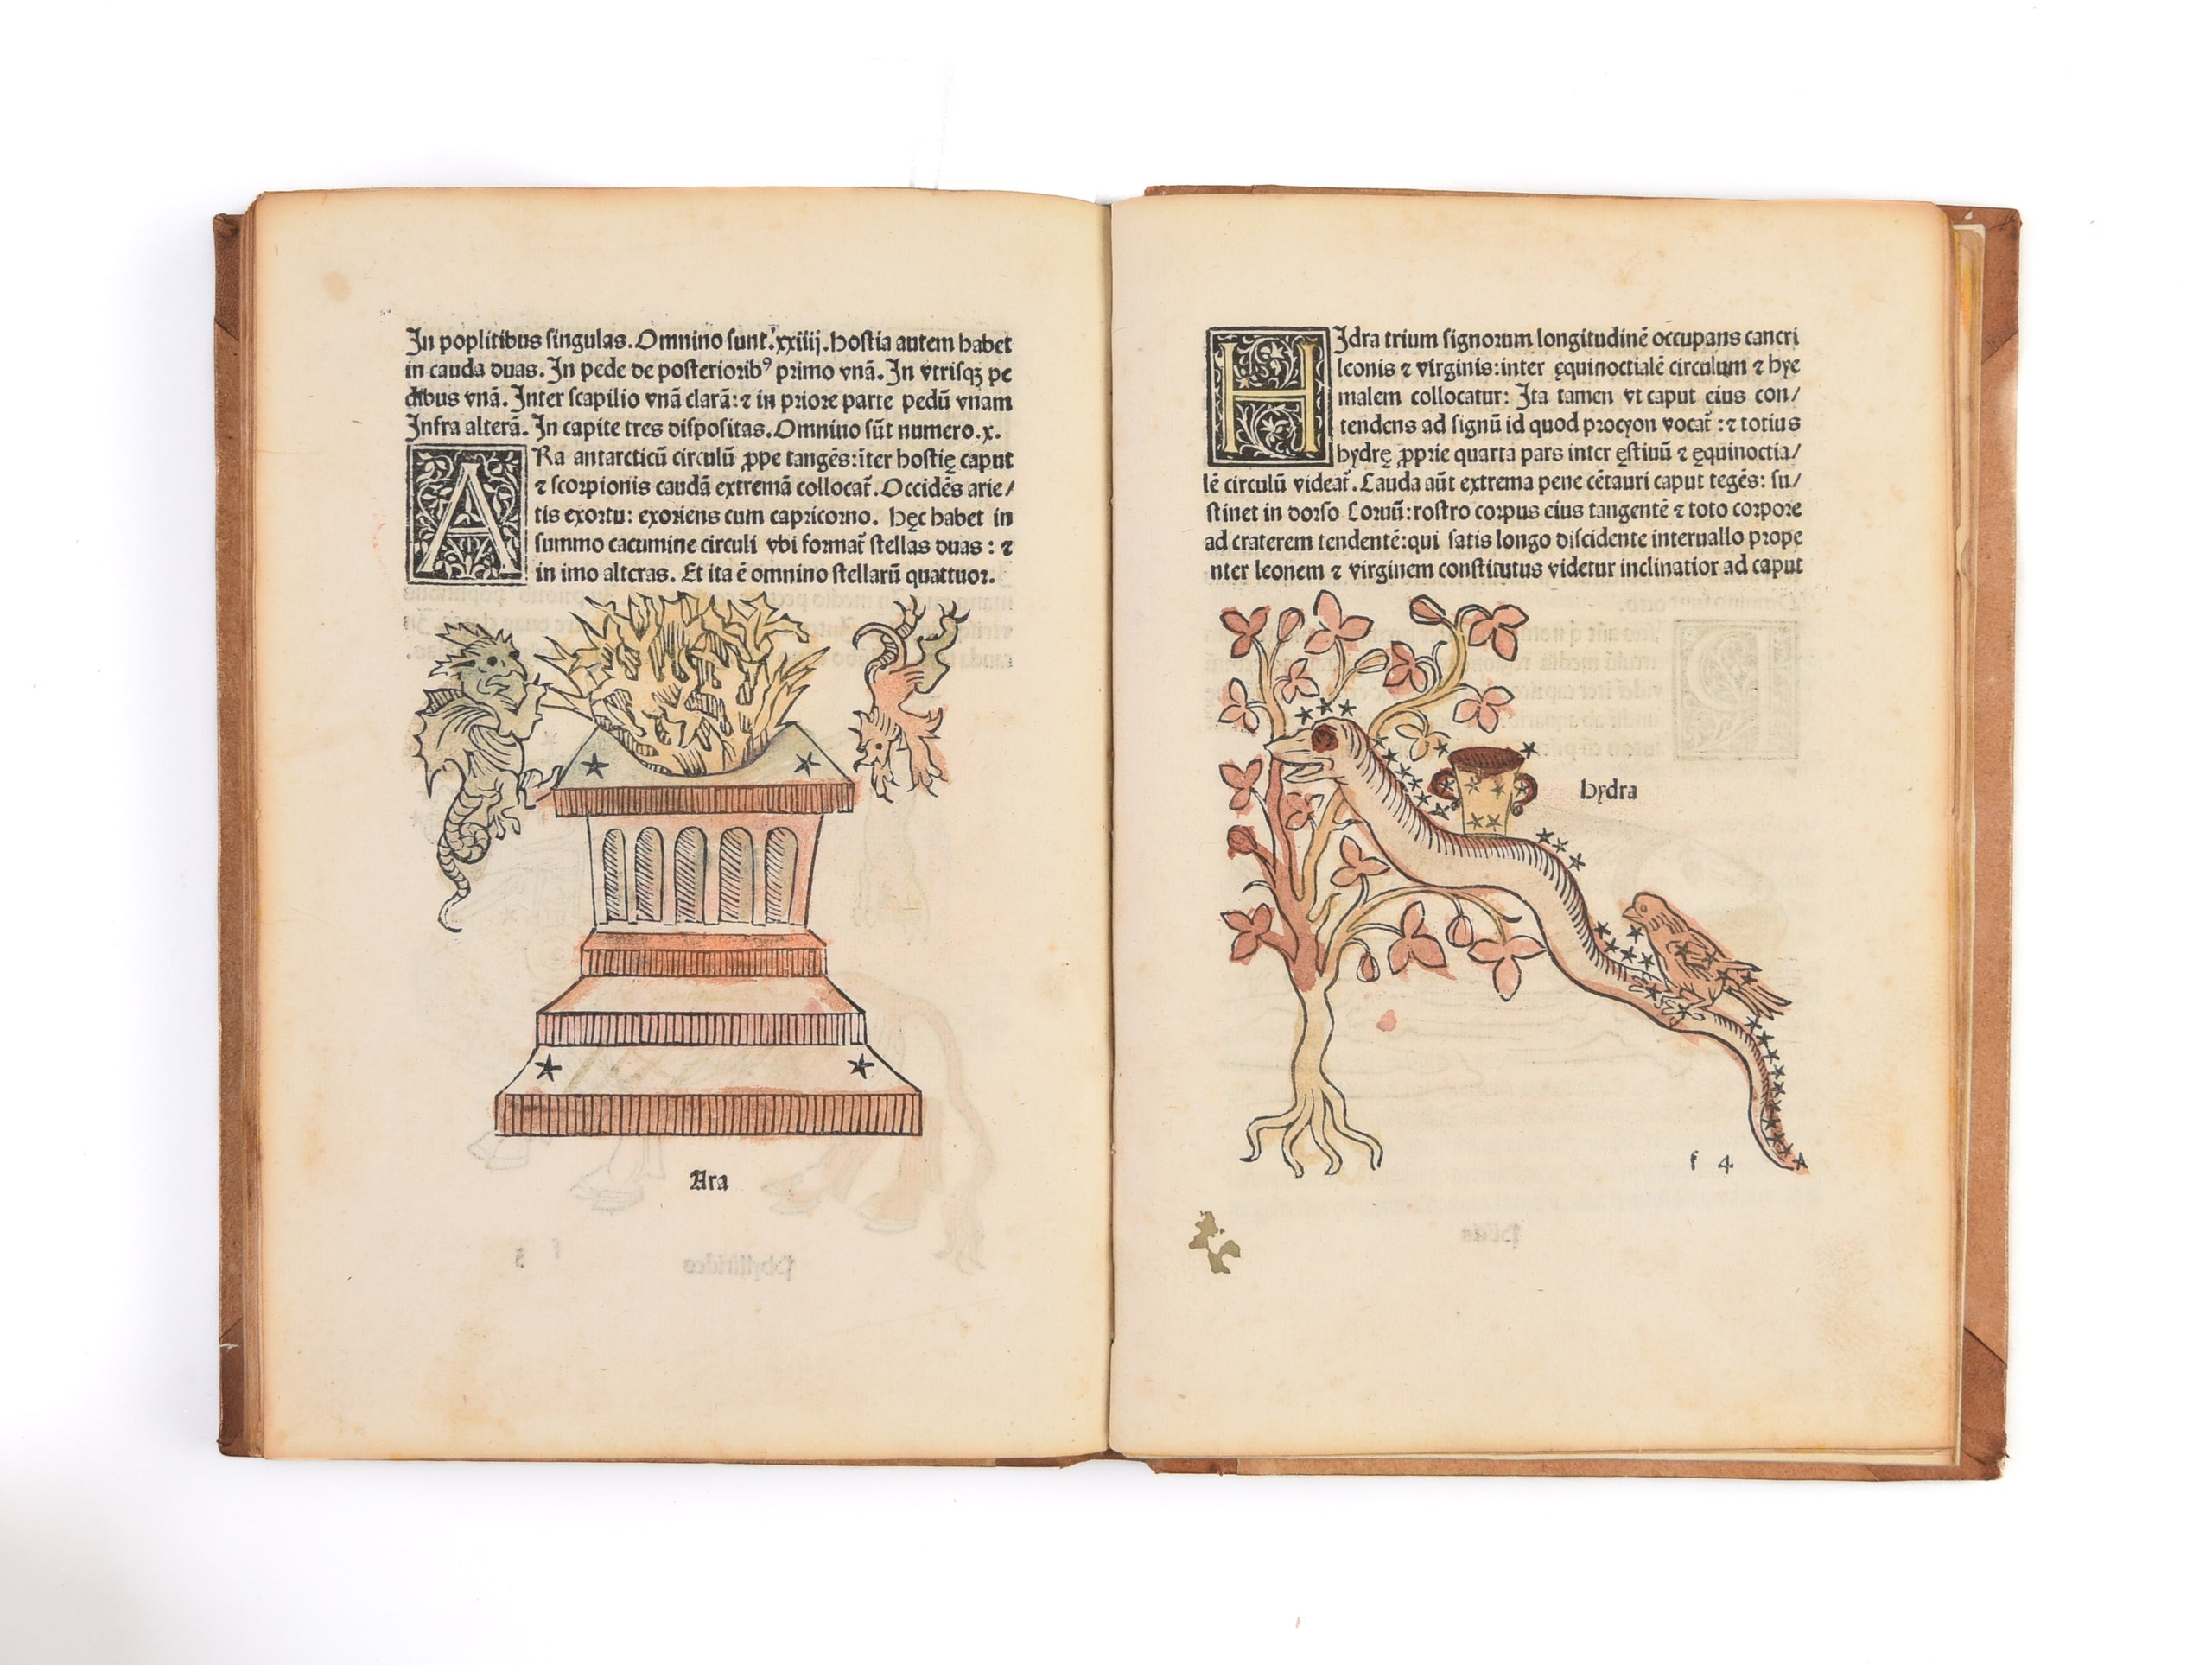 In poplitibus singulas. Omnino sunt. xxiiij. hostia autem habet
in cauda duas. In pede de posteriorib⁹ primo vnã. In vtrisqꝫ pe
dibus vnã. Inter scapilio vnã clarã: ⁊ in priore parte pedũ vnam
Infra alterã. In capite tres dispositas. Omnino sũt numero. x.
ARa antarcticũ circulũ ꝓpe tangẽs: ĩter hostię caput
⁊ scorpionis caudã extremã collocat̃. Occidẽs arie/
tis exortu: exoriens cum capricorno. hęc habet in
summo cacumine circuli vbi format̃ stellas duas: ⁊
in imo alteras. Et ita ẽ omnino stellarũ quattuor.
Ara
HIdra trium signorum longitudinẽ occupans cancri
leonis ⁊ virginis: inter ęquinoctialẽ circulum ⁊ hye
malem collocatur: Ita tamen vt caput eius con/
tendens ad signũ id quod procyon vocat̃: ⁊ totius
hydrę ꝓprie quarta pars inter ęstiuũ ⁊ ęquinoctia/
lẽ circulũ videat̃. Cauda aũt extrema pene cẽtauri caput tegẽs: su/
stinet in dorso Coruũ: rostro corpus eius tangentẽ ⁊ toto corpore
ad craterem tendentẽ: qui satis longo discidente interuallo prope
nter leonem ⁊ virginem constitutus videtur inclinatior ad caput
hydra
f 4